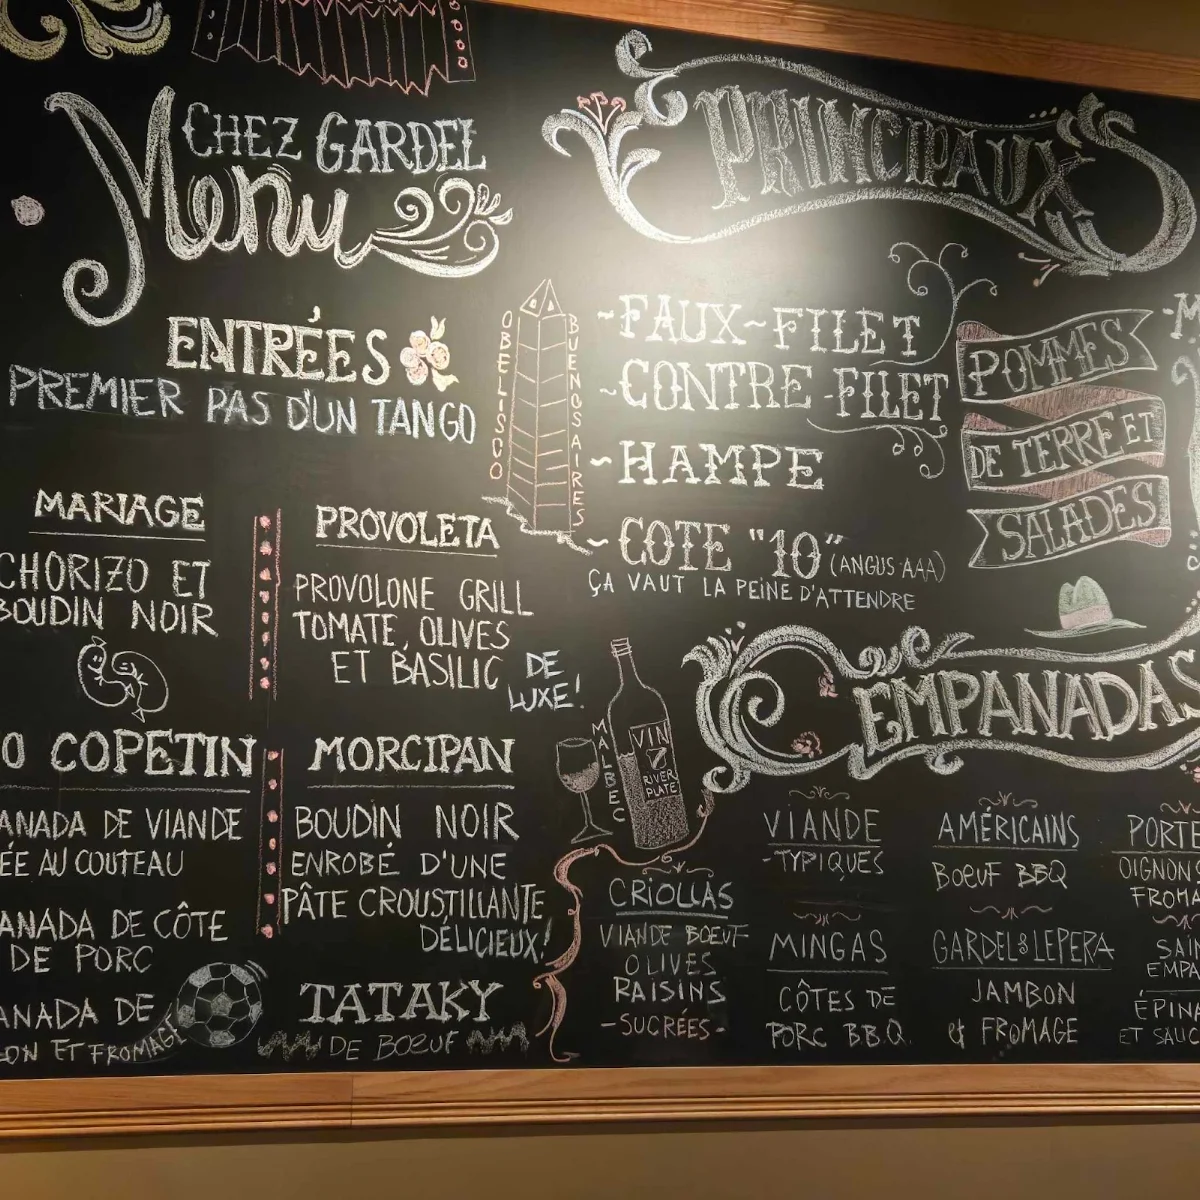 CHEZ GARDEL
Menu
ENTRÉES
PREMIER PAS D'UN TANGO
MARIAGE
CHORIZO ET
BOUDIN NOIR
PROVOLETA
PROVOLONE GRILL
TOMATE, OLIVES
ET BASILIC
DE
LUXE!
O COPETIN
ANADA DE VIANDE
ÉE AU COUTEAU
ANADA DE CÔTE
DE PORC
ANADA DE
ON ET FROMAGE
MORCIPAN
BOUDIN NOIR
ENROBÉ D'UNE
PÂTE CROUSTILLANTE
DÉLICIEUX!
TATAKY
DE BOEUF
OBELISCO
BUENOS AIRES
PRINCIPAUX
-FAUX-FILET
-CONTRE-FILET
-HAMPE
-COTE "10" (ANGUS AAA)
ÇA VAUT LA PEINE D'ATTENDRE
POMMES
DE TERRE ET
SALADES
-M
MALBEC
VIN
RIVER
PLATE
EMPANADAS
CRIOLLAS
VIANDE BOEUF
OLIVES
RAISINS
-SUCRÉES-
VIANDE
-TYPIQUES
MINGAS
CÔTES DE
PORC B.B.Q.
AMÉRICAINS
BOEUF BBQ
GARDEL&LEPERA
JAMBON
& FROMAGE
PORTE
OIGNONS
FROMA
SAI
EMPA
ÉPINA
ET SAUC